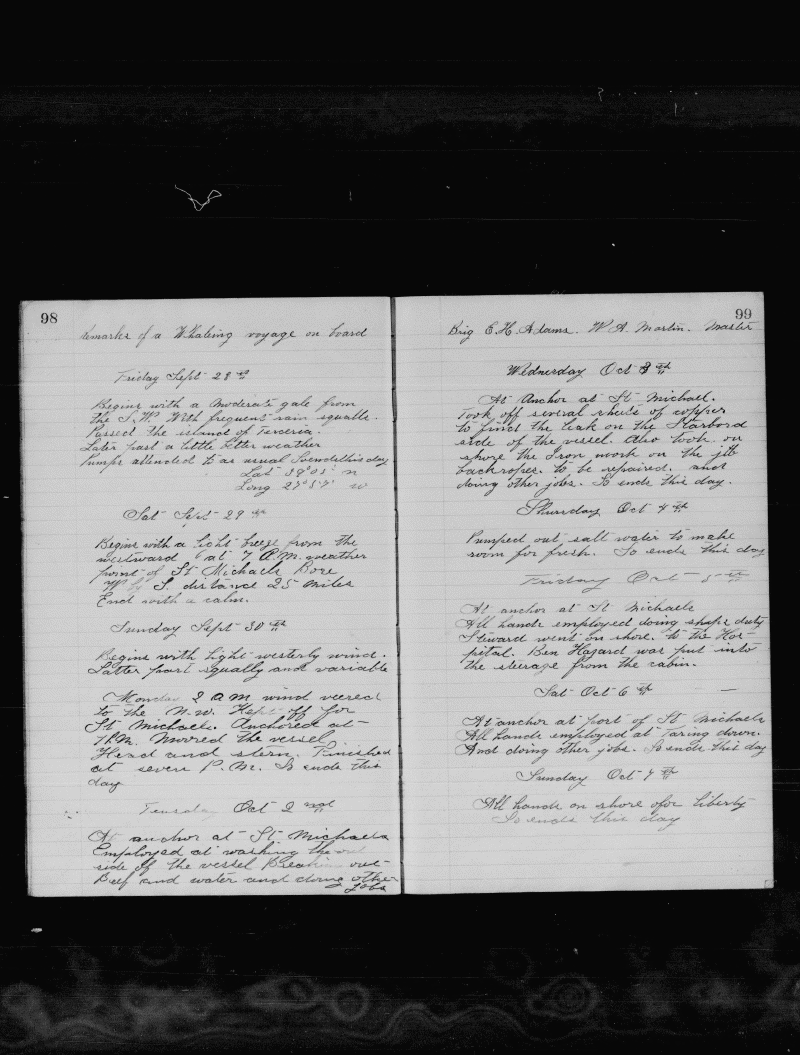 98
Remarks of a Whaleing voyage on board
Friday Sept 28th
Begins with a moderate gale from
the S.W. With frequent rain squalls.
Passed the island of Terceria.
Later part a little better weather
Pumps attended to as usual So ends this day
Lat 39° 01' N
Long 27° 57' W
Sat Sept 29th
Begins with a light breeze from the
westward at 7 A.M. weather
point of St Michaels Bore
W by S. distance 25 miles
End with a calm.
Sunday Sept 30th
Begins with light westerly wind.
Latter part squally and variable
Monday 3 A M wind veered
to the N.W. Kept off for
St Michael. Anchored at
1 P.M. Morred the vessel
Head and stern. Finished
at seven P.M. So ends this
day
Teusday Oct 2nd
At anchor at St. Michaels
Employed at washing the out
side of the vessel Breaking out
Beef and water and doing other
jobs
99
Brig E. H. Adams. W A. Martin. Master
Wednesday Oct 3th
At Anchor at St Michael.
Took off several sheets of copper
to find the leak on the Starbord
side of the vessel. Also took on
shore the Iron work on the jib
backropes. to be repaired. and
doing other jobs. So ends this day.
Thursday Oct 4th
Pumped out salt water to make
room for fresh. So ends this day
Friday Oct 5th
At anchor at St Michaels
All hands employed doing ships duty
Steward went on shore. to the Hos-
pital. Ben Hazard was put into
the steerage from the cabin.
Sat Oct 6th
At anchor at port of St Michaels
All hands employed at Taring down.
And doing other jobs. So ends this day
Sunday Oct 7th
All hands on shore for liberty
So ends this day